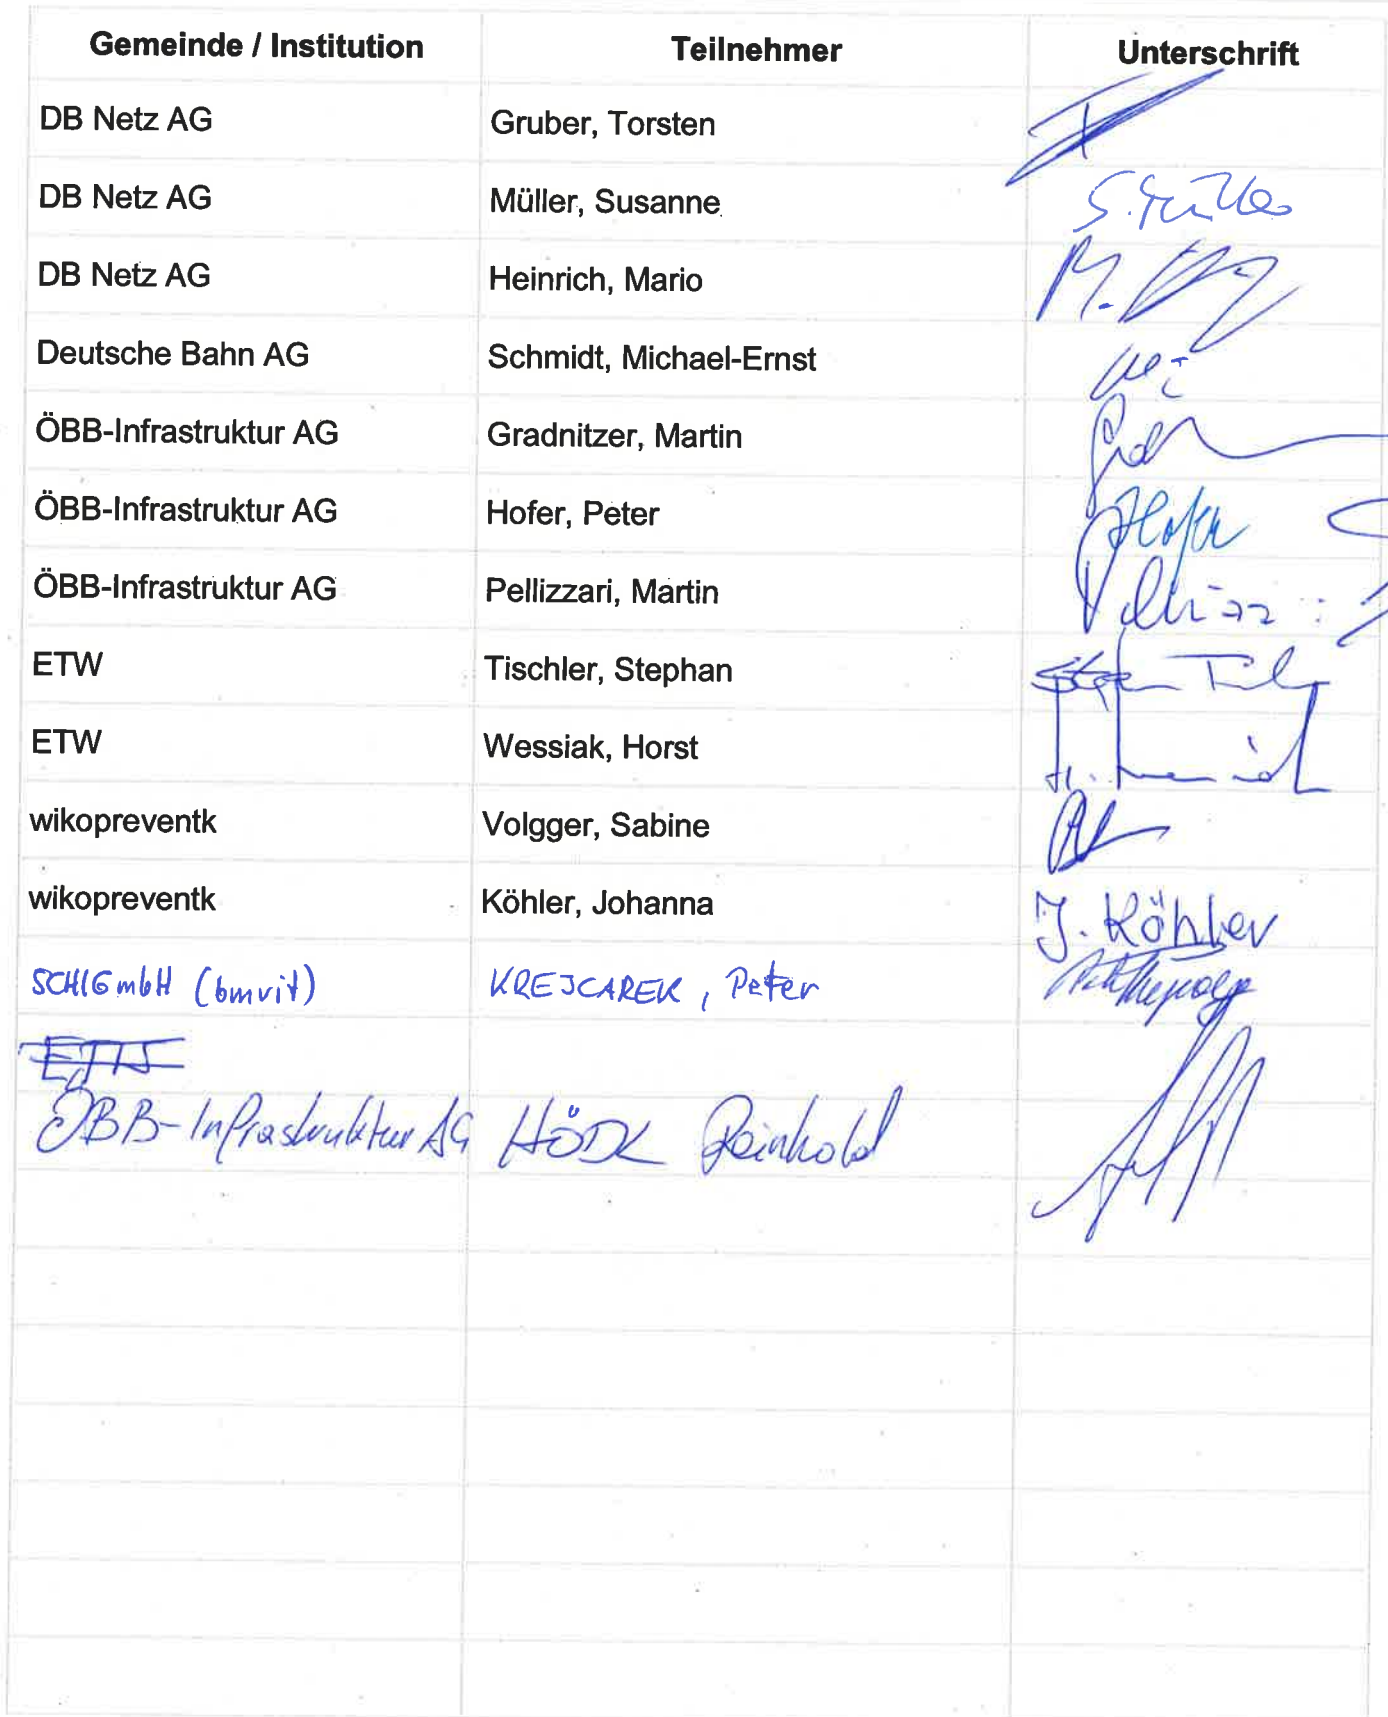 Gemeinde / Institution Teilnehmer Unterschrift
DB Netz AG Gruber, Torsten
DB Netz AG Müller, Susanne S. Müller
DB Netz AG Heinrich, Mario
Deutsche Bahn AG Schmidt, Michael-Ernst
ÖBB-Infrastruktur AG Gradnitzer, Martin
ÖBB-Infrastruktur AG Hofer, Peter Hofer
ÖBB-Infrastruktur AG Pellizzari, Martin
ETW Tischler, Stephan
ETW Wessiak, Horst
wikopreventk Volgger, Sabine
wikopreventk Köhler, Johanna J. Köhler
SCHIG mbH (bmvit) KREJCAREK, Peter
ÖBB-Infrastruktur AG HÖDL Reinhold